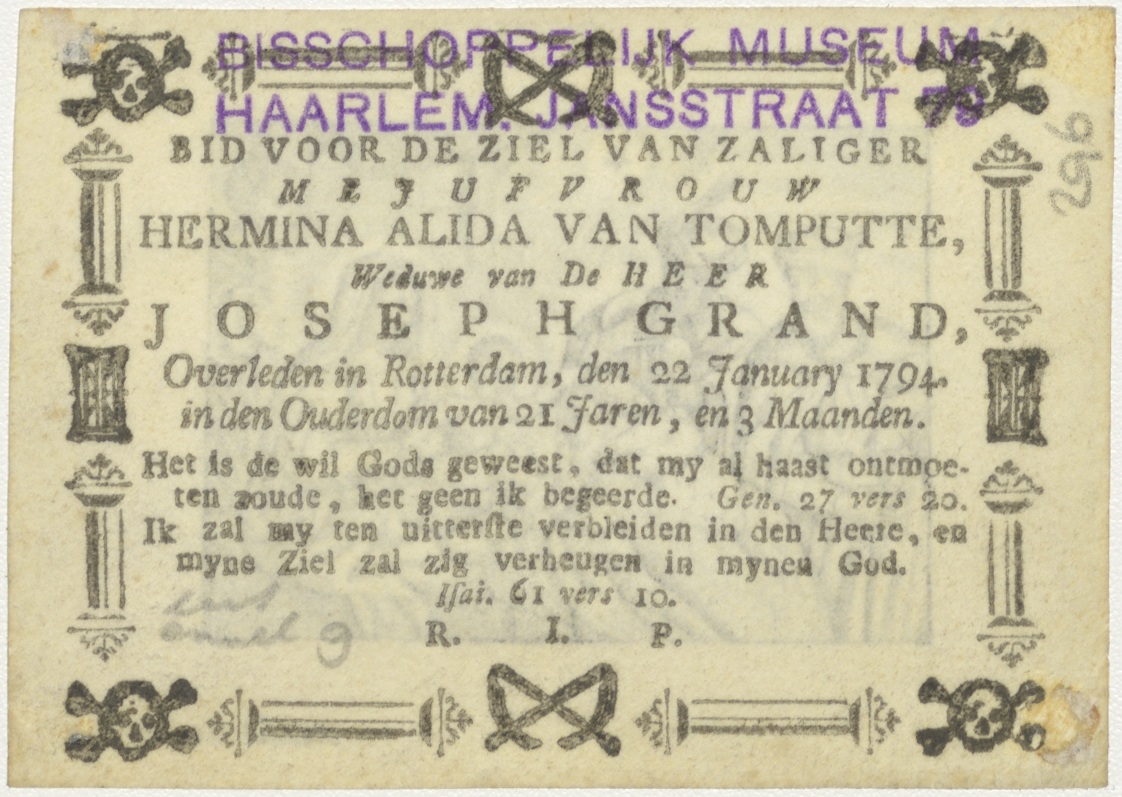 BISSCHOPPELIJK MUSEUM
HAARLEM. JANSSTRAAT 79
BID VOOR DE ZIEL VAN ZALIGER
MEJUFVROUW
HERMINA ALIDA VAN TOMPUTTE,
Weduwe van De HEER
JOSEPH GRAND,
Overleden in Rotterdam, den 22 January 1794.
in den Ouderdom van 21 Jaren, en 3 Maanden.
Het is de wil Gods geweest, dat my al haast ontmoe-
ten zoude, het geen ik begeerde. Gen. 27 vers 20.
Ik zal my ten uitterſte verbleiden in den Heere, en
myne Ziel zal zig verheugen in mynen God.
Iſai. 61 vers 10.
R. I. P.
296
9